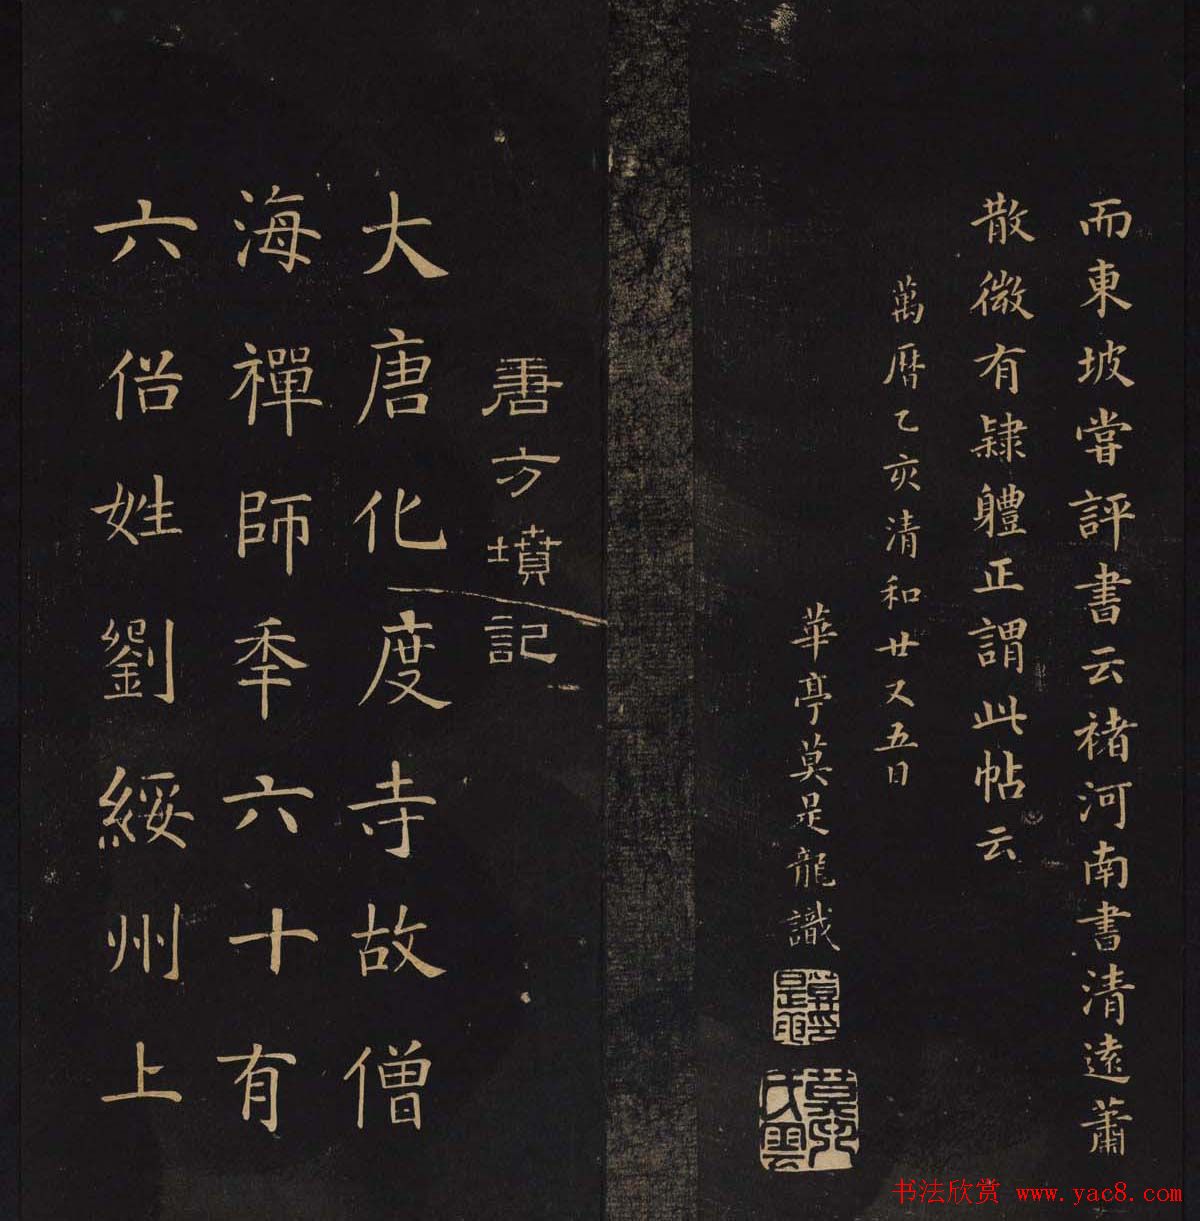 而東坡嘗評書云褚河南書清遠蕭
散微有隸體正謂此帖云
萬曆乙亥清和廿又五日
華亭莫是龍識
唐方墳記
大唐化度寺故僧
海禪師秊六十有
六俗姓劉綏州上
书法欣赏 www.yac8.com